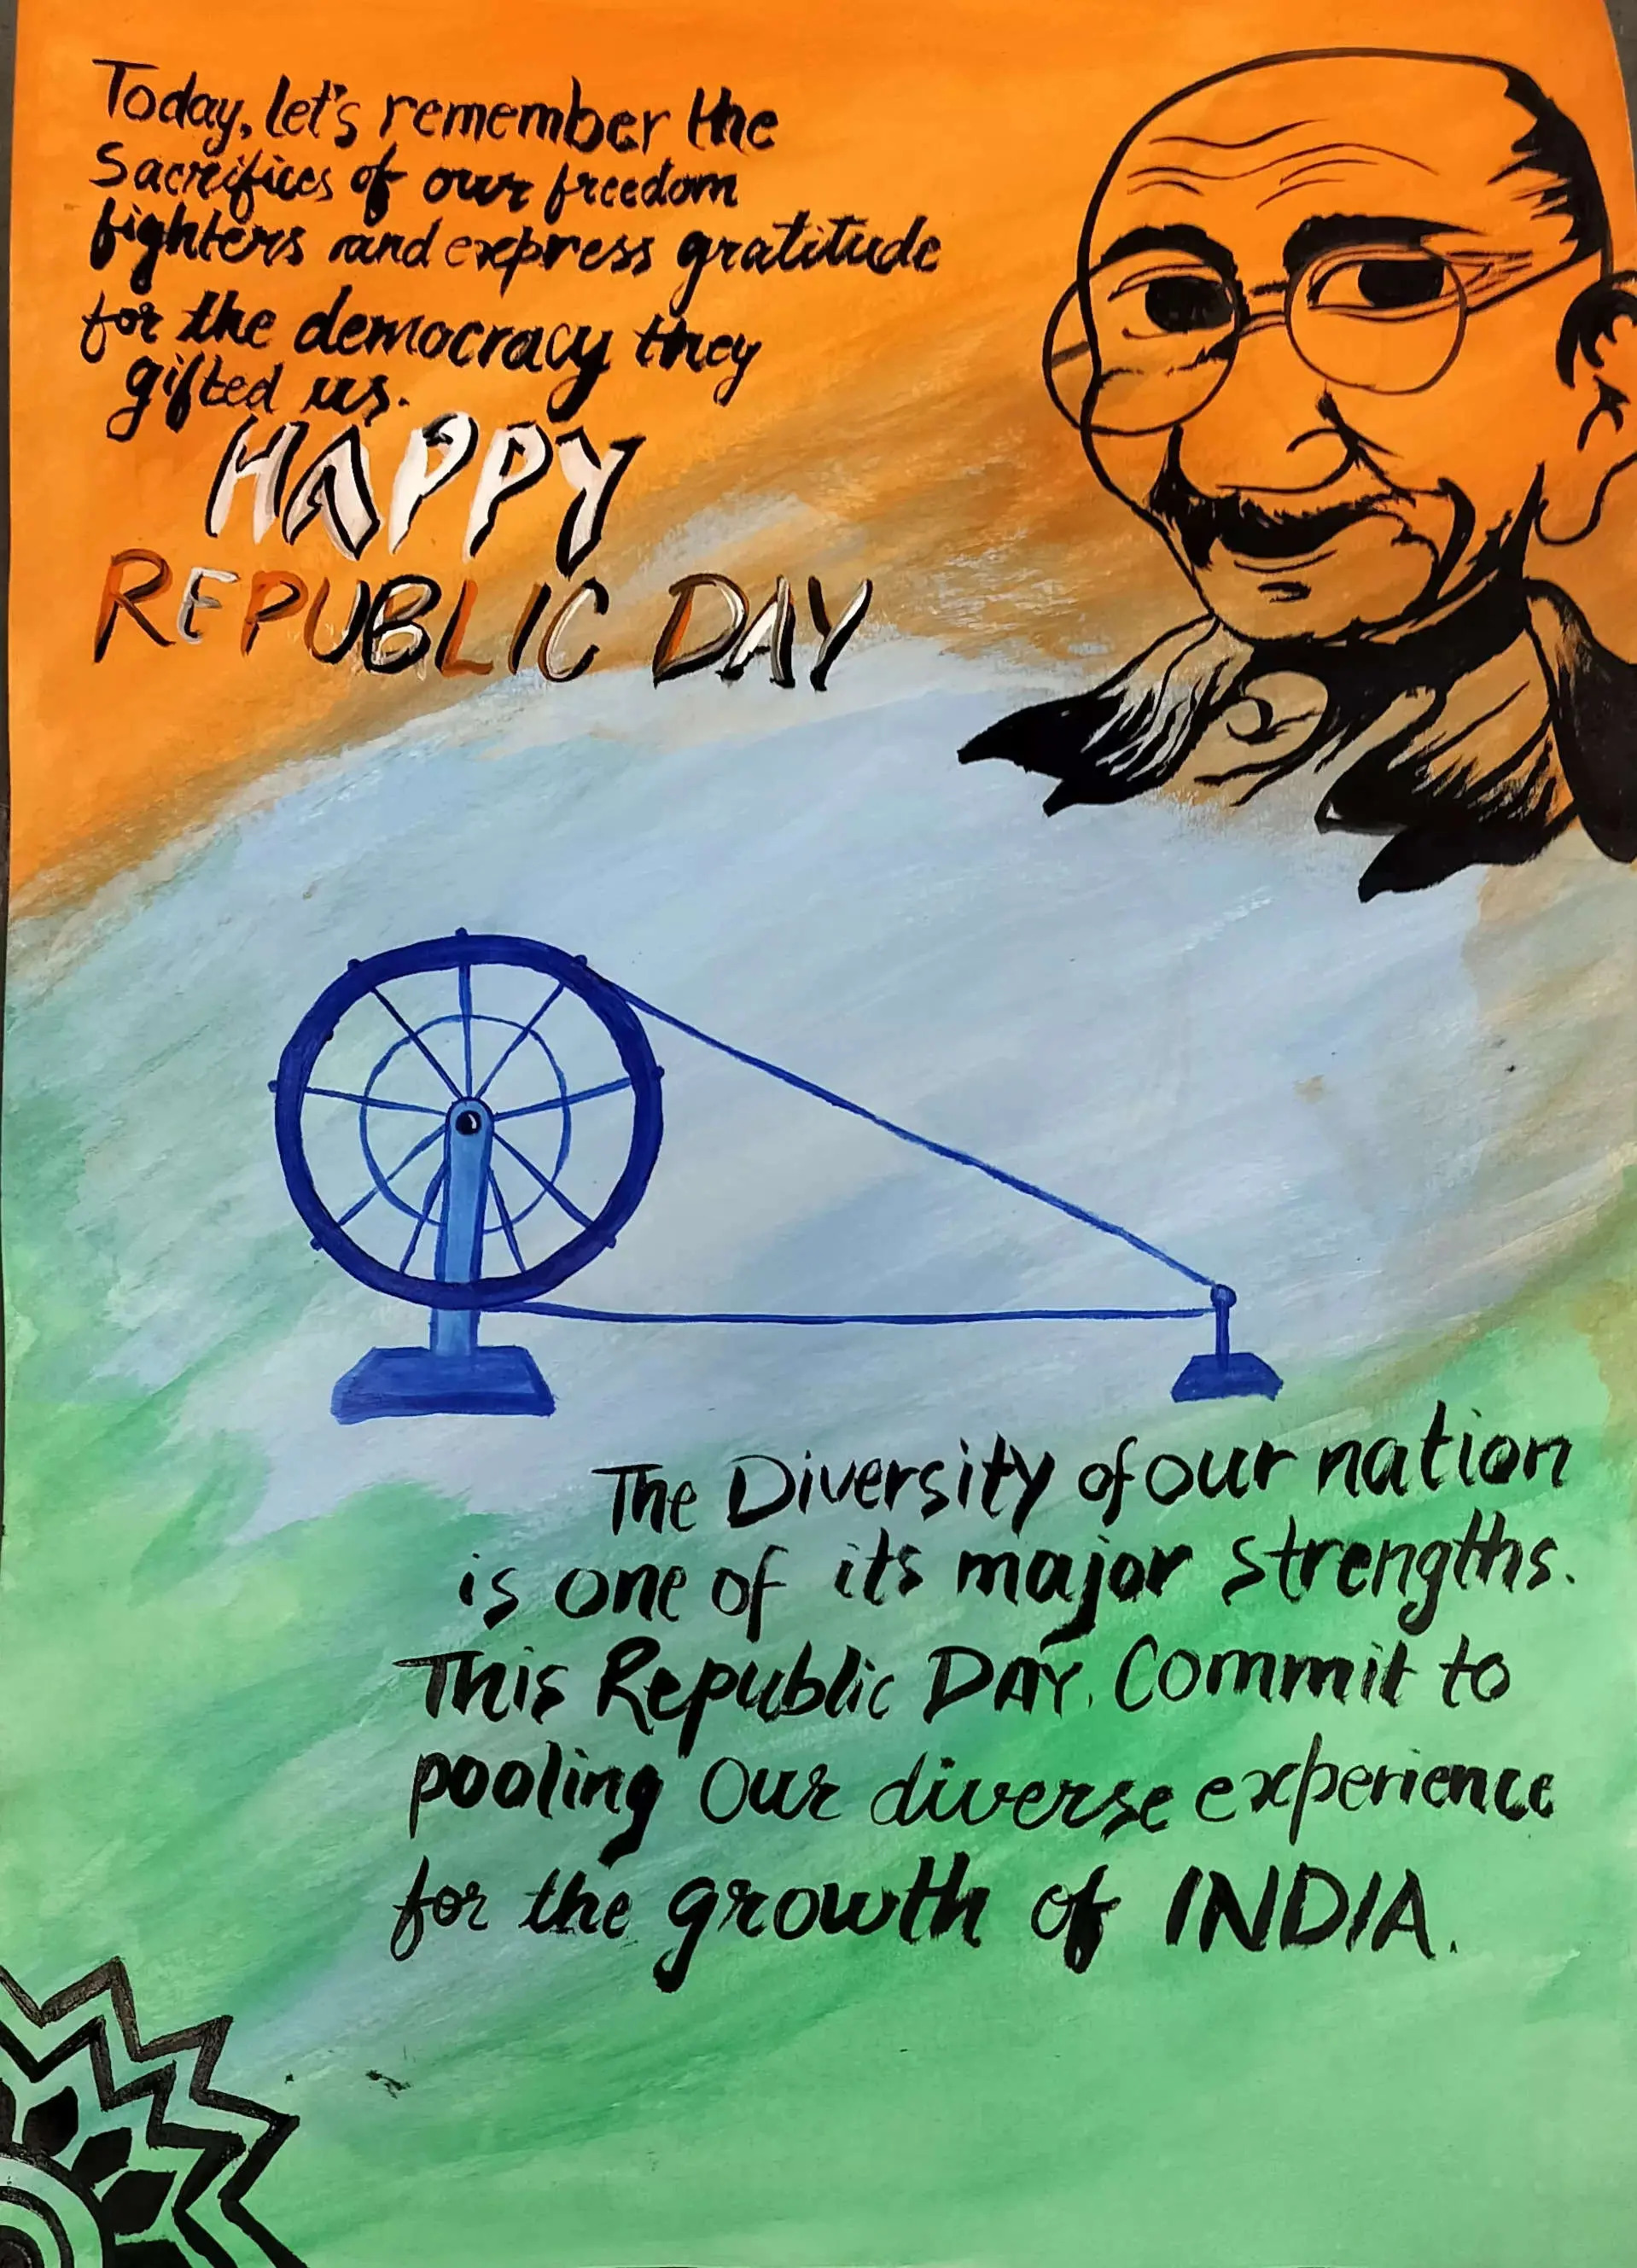 Today, let's remember the
Sacrifices of our freedom
fighters and express gratitude
for the democracy they
gifted us.
HAPPY
REPUBLIC DAY
The Diversity of our nation
is one of its major strengths.
This Republic DAY. Commit to
pooling Our diverse experience
for the growth of INDIA.